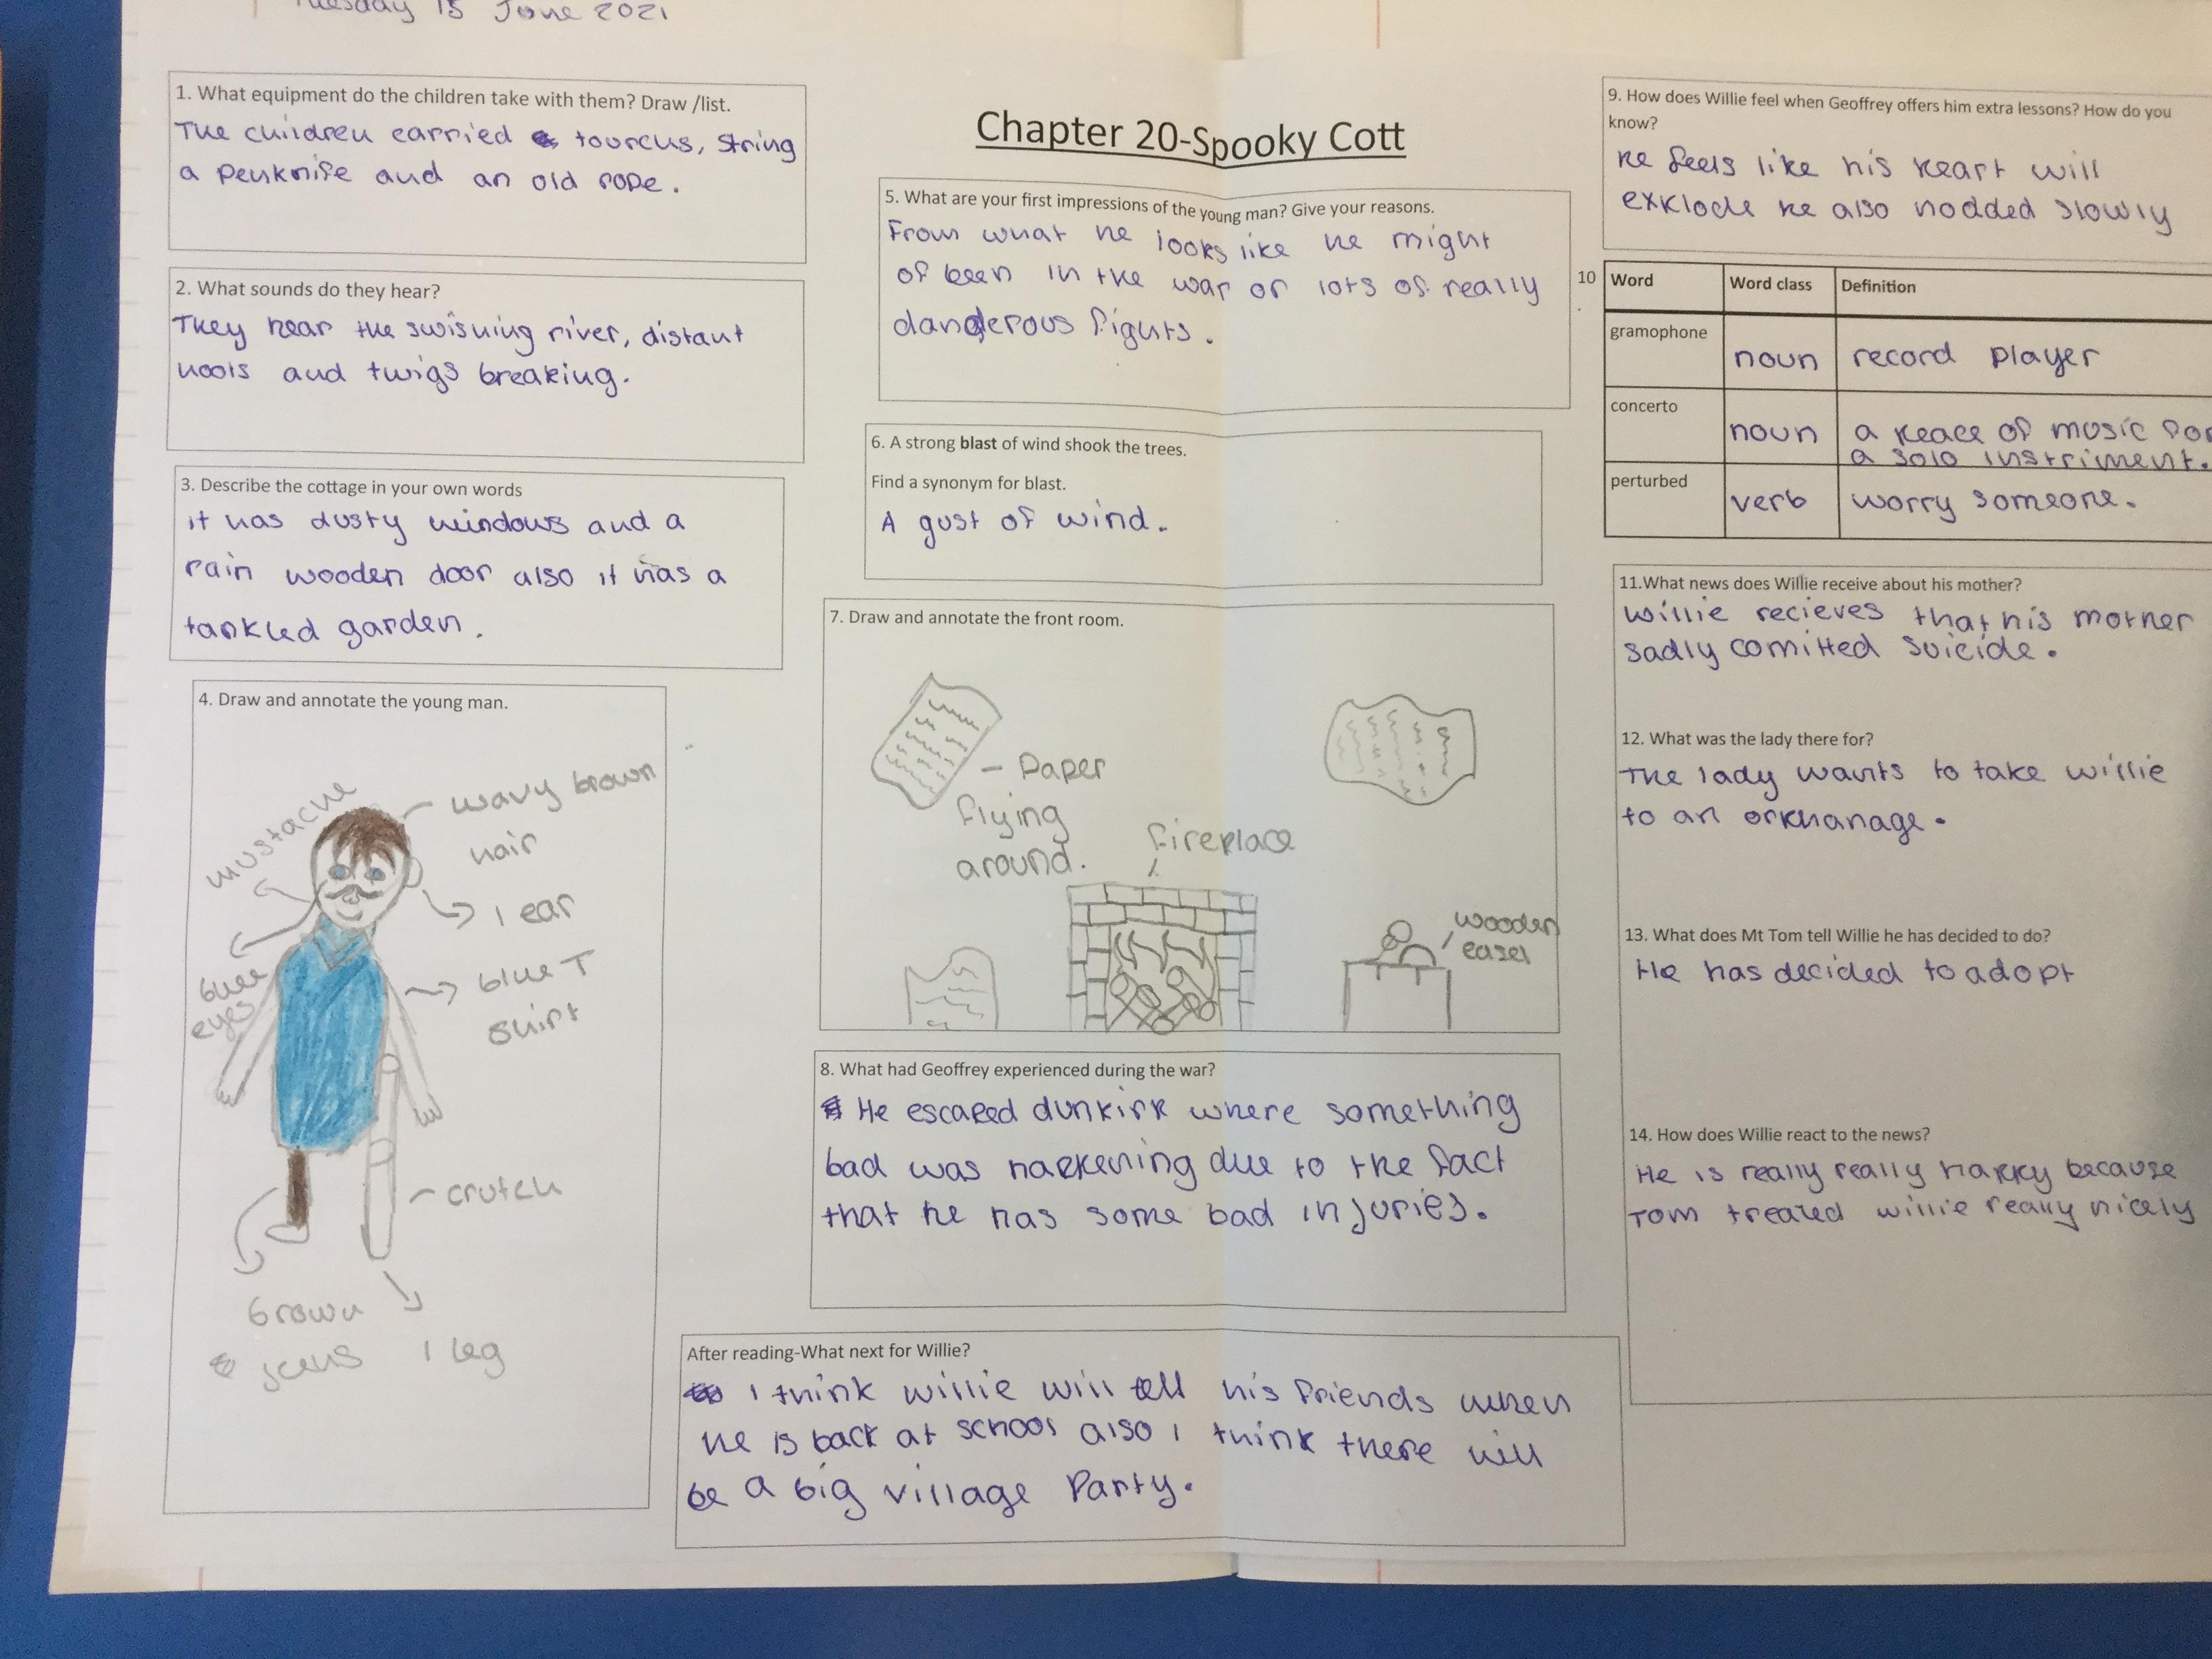 Tuesday 15 June 2021
1. What equipment do the children take with them? Draw /list.
The children carried tourcus, string
a penknife and an old rope.
2. What sounds do they hear?
They hear the swishing river, distant
hoots and twigs breaking.
3. Describe the cottage in your own words
it has dusty windows and a
rain wooden door also it has a
tankled garden.
4. Draw and annotate the young man.
mustache
wavy brown
hair
1 ear
blue
eyes
blue T
shirt
crutch
brown
jeans
1 leg
Chapter 20-Spooky Cott
5. What are your first impressions of the young man? Give your reasons.
From what he looks like he might
of been in the war or lots of really
dangerous fights.
6. A strong blast of wind shook the trees.
Find a synonym for blast.
A gust of wind.
7. Draw and annotate the front room.
- Paper
flying
around.
fireplace
wooden
easel
8. What had Geoffrey experienced during the war?
He escaped dunkirk where something
bad was happening due to the fact
that he has some bad injuries.
After reading-What next for Willie?
I think willie will tell his friends when
he is back at school also I think there will
be a big village Party.
9. How does Willie feel when Geoffrey offers him extra lessons? How do you
know?
he feels like his heart will
exklode he also nodded slowly
10 Word Word class Definition
gramophone noun record player
concerto noun a peace of music for
a solo instriment.
perturbed verb worry someone.
11.What news does Willie receive about his mother?
Willie recieves that his mother
sadly comitted suicide.
12. What was the lady there for?
The lady wants to take willie
to an orkhanage.
13. What does Mt Tom tell Willie he has decided to do?
He has decided to adopt
14. How does Willie react to the news?
He is really really happy because
Tom treated willie really nicely